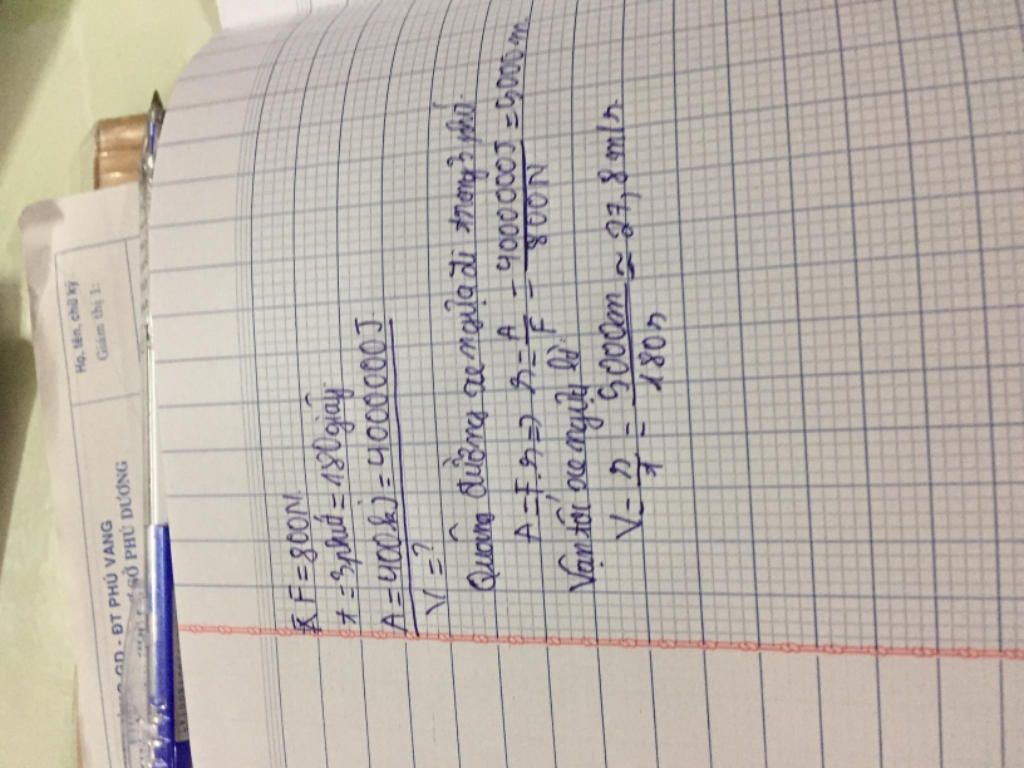 GD - ĐT PHÚ VANG
SỞ PHÚ DƯƠNG
Họ, tên, chữ ký
Giám thị 1:
F = 800N.
t = 3phút = 180giây
A = 400kJ = 4000000J
V = ?
Quãng đường xe ngựa đi trong 3 phút.
A = F.s => s = A/F = 4000000J/800N = 5000m.
Vận tốc xe ngựa là:
V = s/t = 5000m/180s ≈ 27,8 m/s